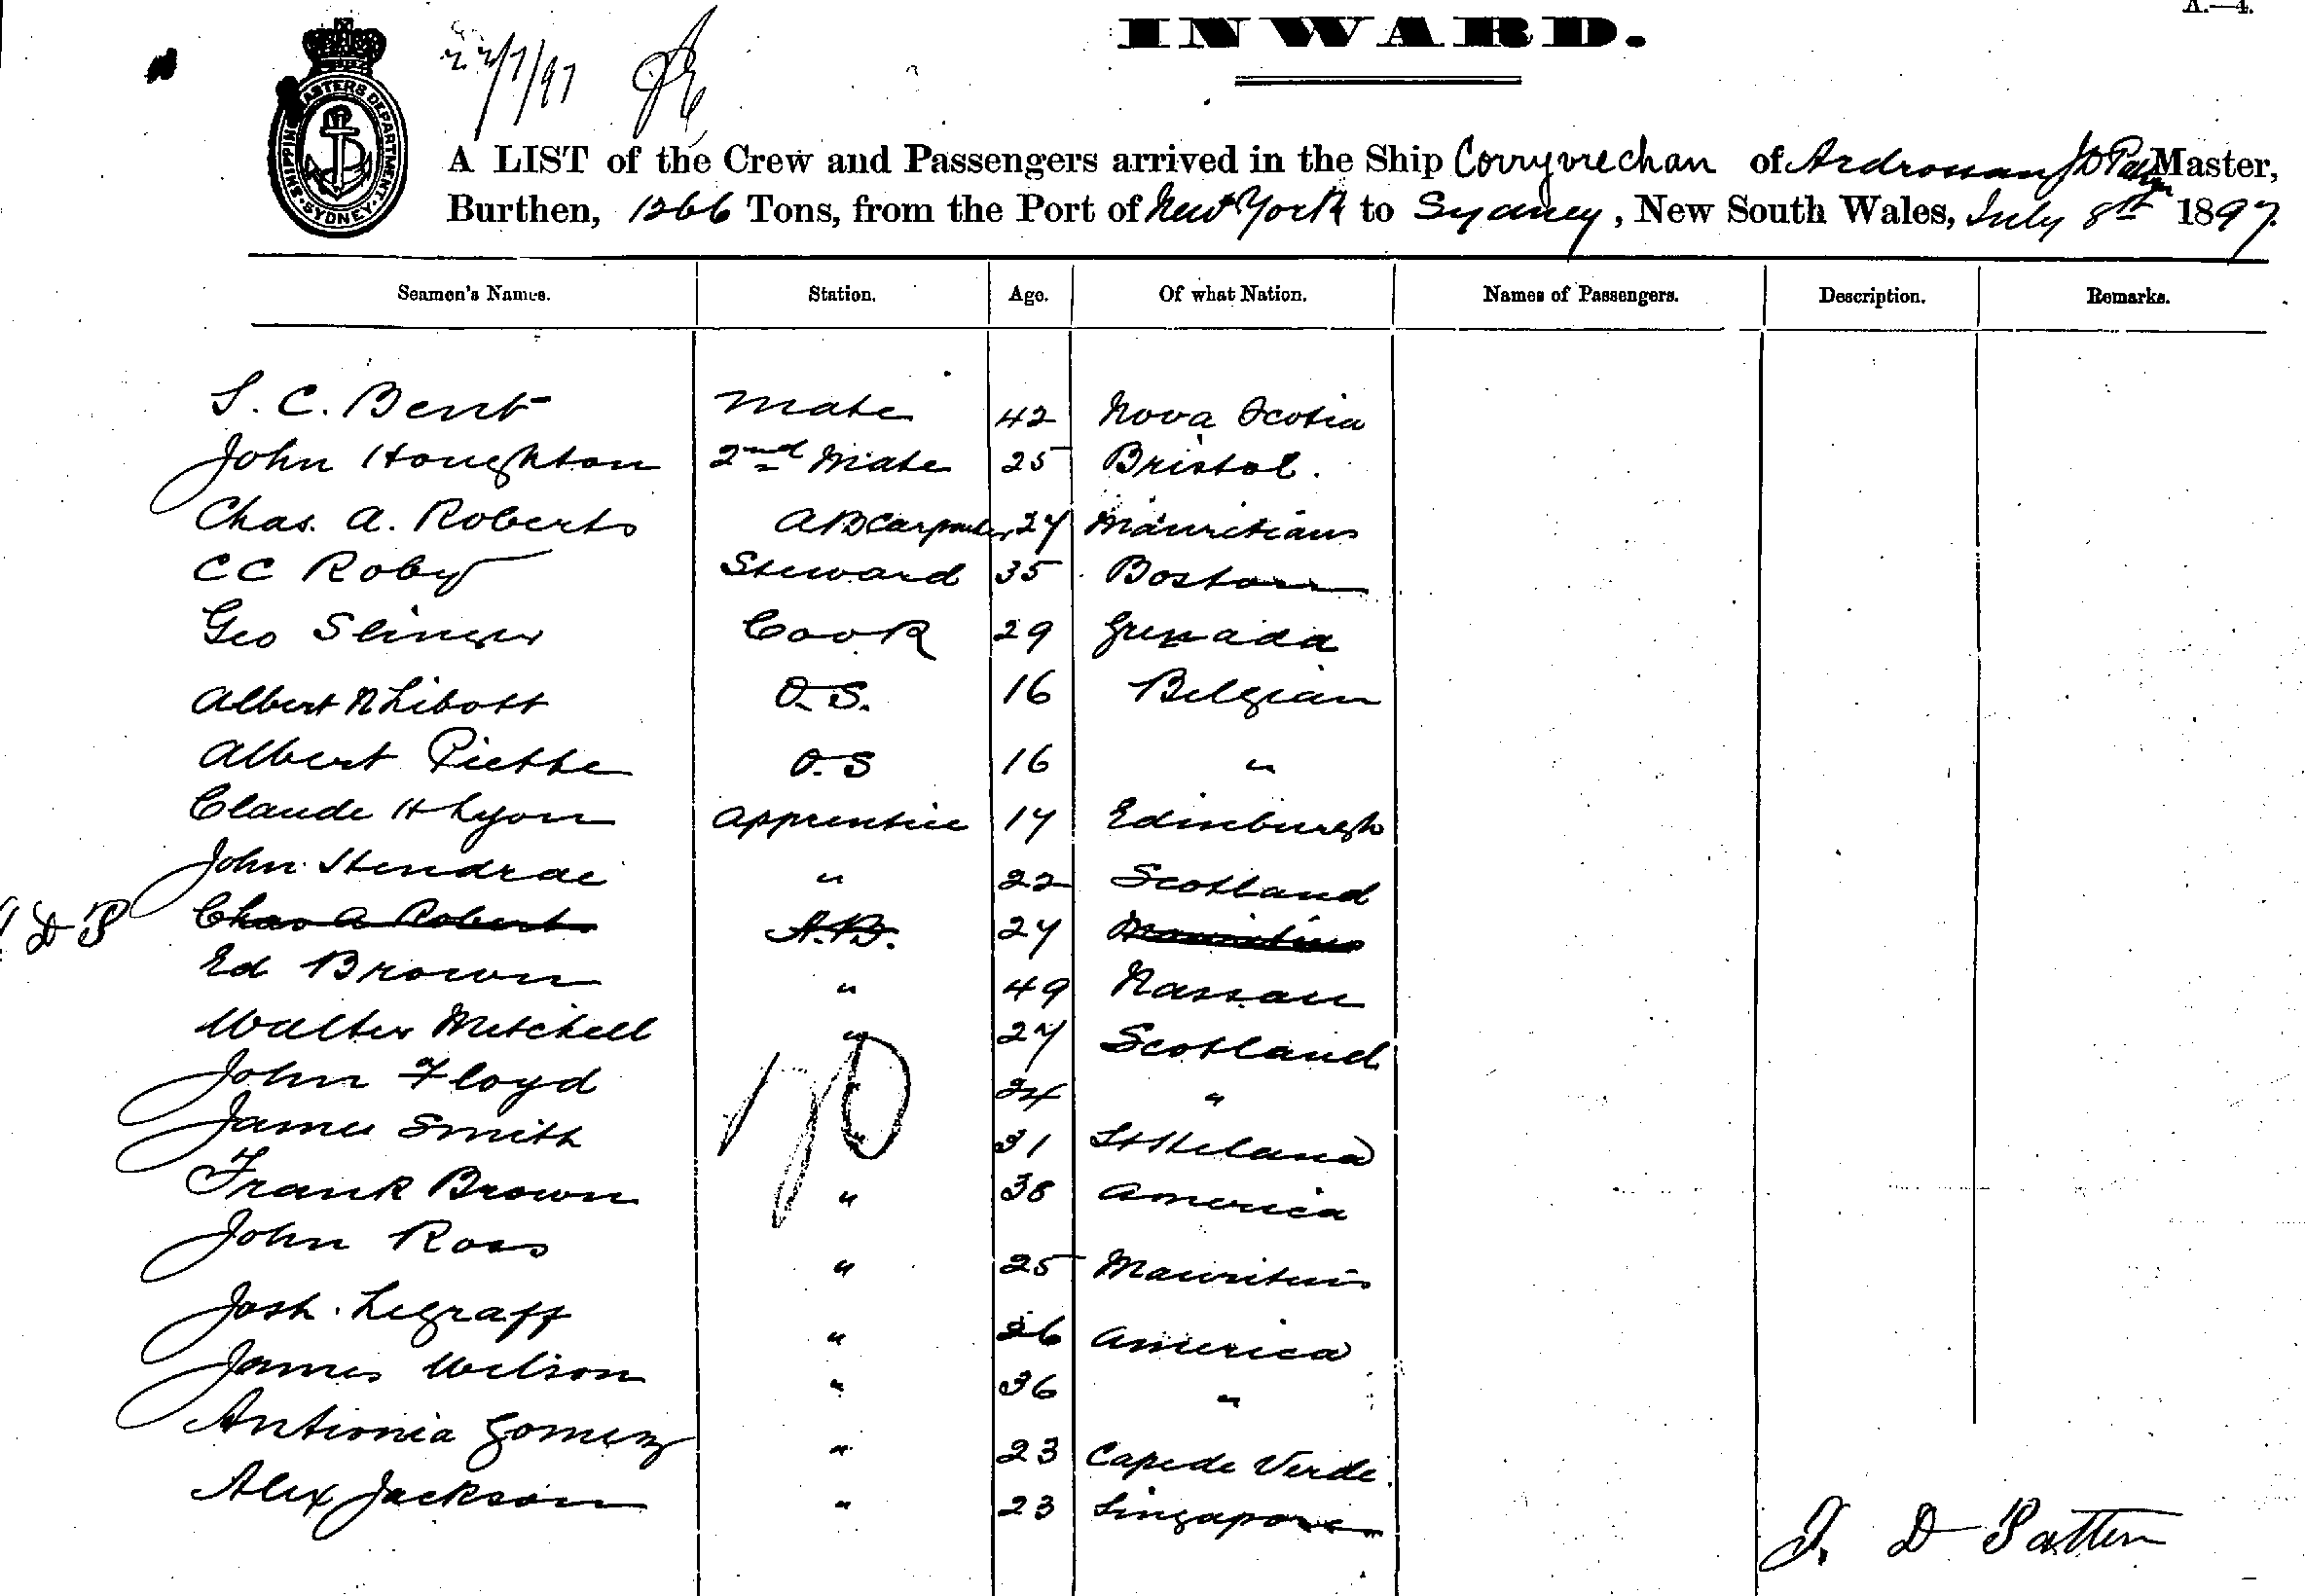 A.—4.
INWARD.
22/7/97
SHIPPING MASTERS DEPARTMENT
SYDNEY
A LIST of the Crew and Passengers arrived in the Ship Corryvrechan of Ardrossan, J D Patten Master,
Burthen, 1266 Tons, from the Port of New York to Sydney, New South Wales, July 8th 1897.
Seamen's Names. Station. Age. Of what Nation. Names of Passengers. Description. Remarks.
S. C. Bent Mate 42 Nova Scotia
John Houghton 2nd Mate 25 Bristol.
Chas. A. Roberts AB Carpenter 27 Mauritians
CC Roby Steward 35 Boston
Geo Slinger Cook 29 Grenada
Albert N Libott O.S. 16 Belgian
Albert Piette O.S 16 "
Claude H Lyon Apprentice 17 Edinburgh
John Hendrae " 22 Scotland
J D P Chas A Roberts A.B. 27 Mauritius
Ed Brown " 49 Nassau
Walter Mitchell " 27 Scotland
John Floyd " 24 "
James Smith " 31 St Helana
Frank Brown " 38 America
John Ross " 25 Mauritius
Josh. Legraff " 26 America
James Wilson " 36 "
Antionia Gomez " 23 Cape de Verde.
Alex Jackson " 23 Singapore
J. D Patten